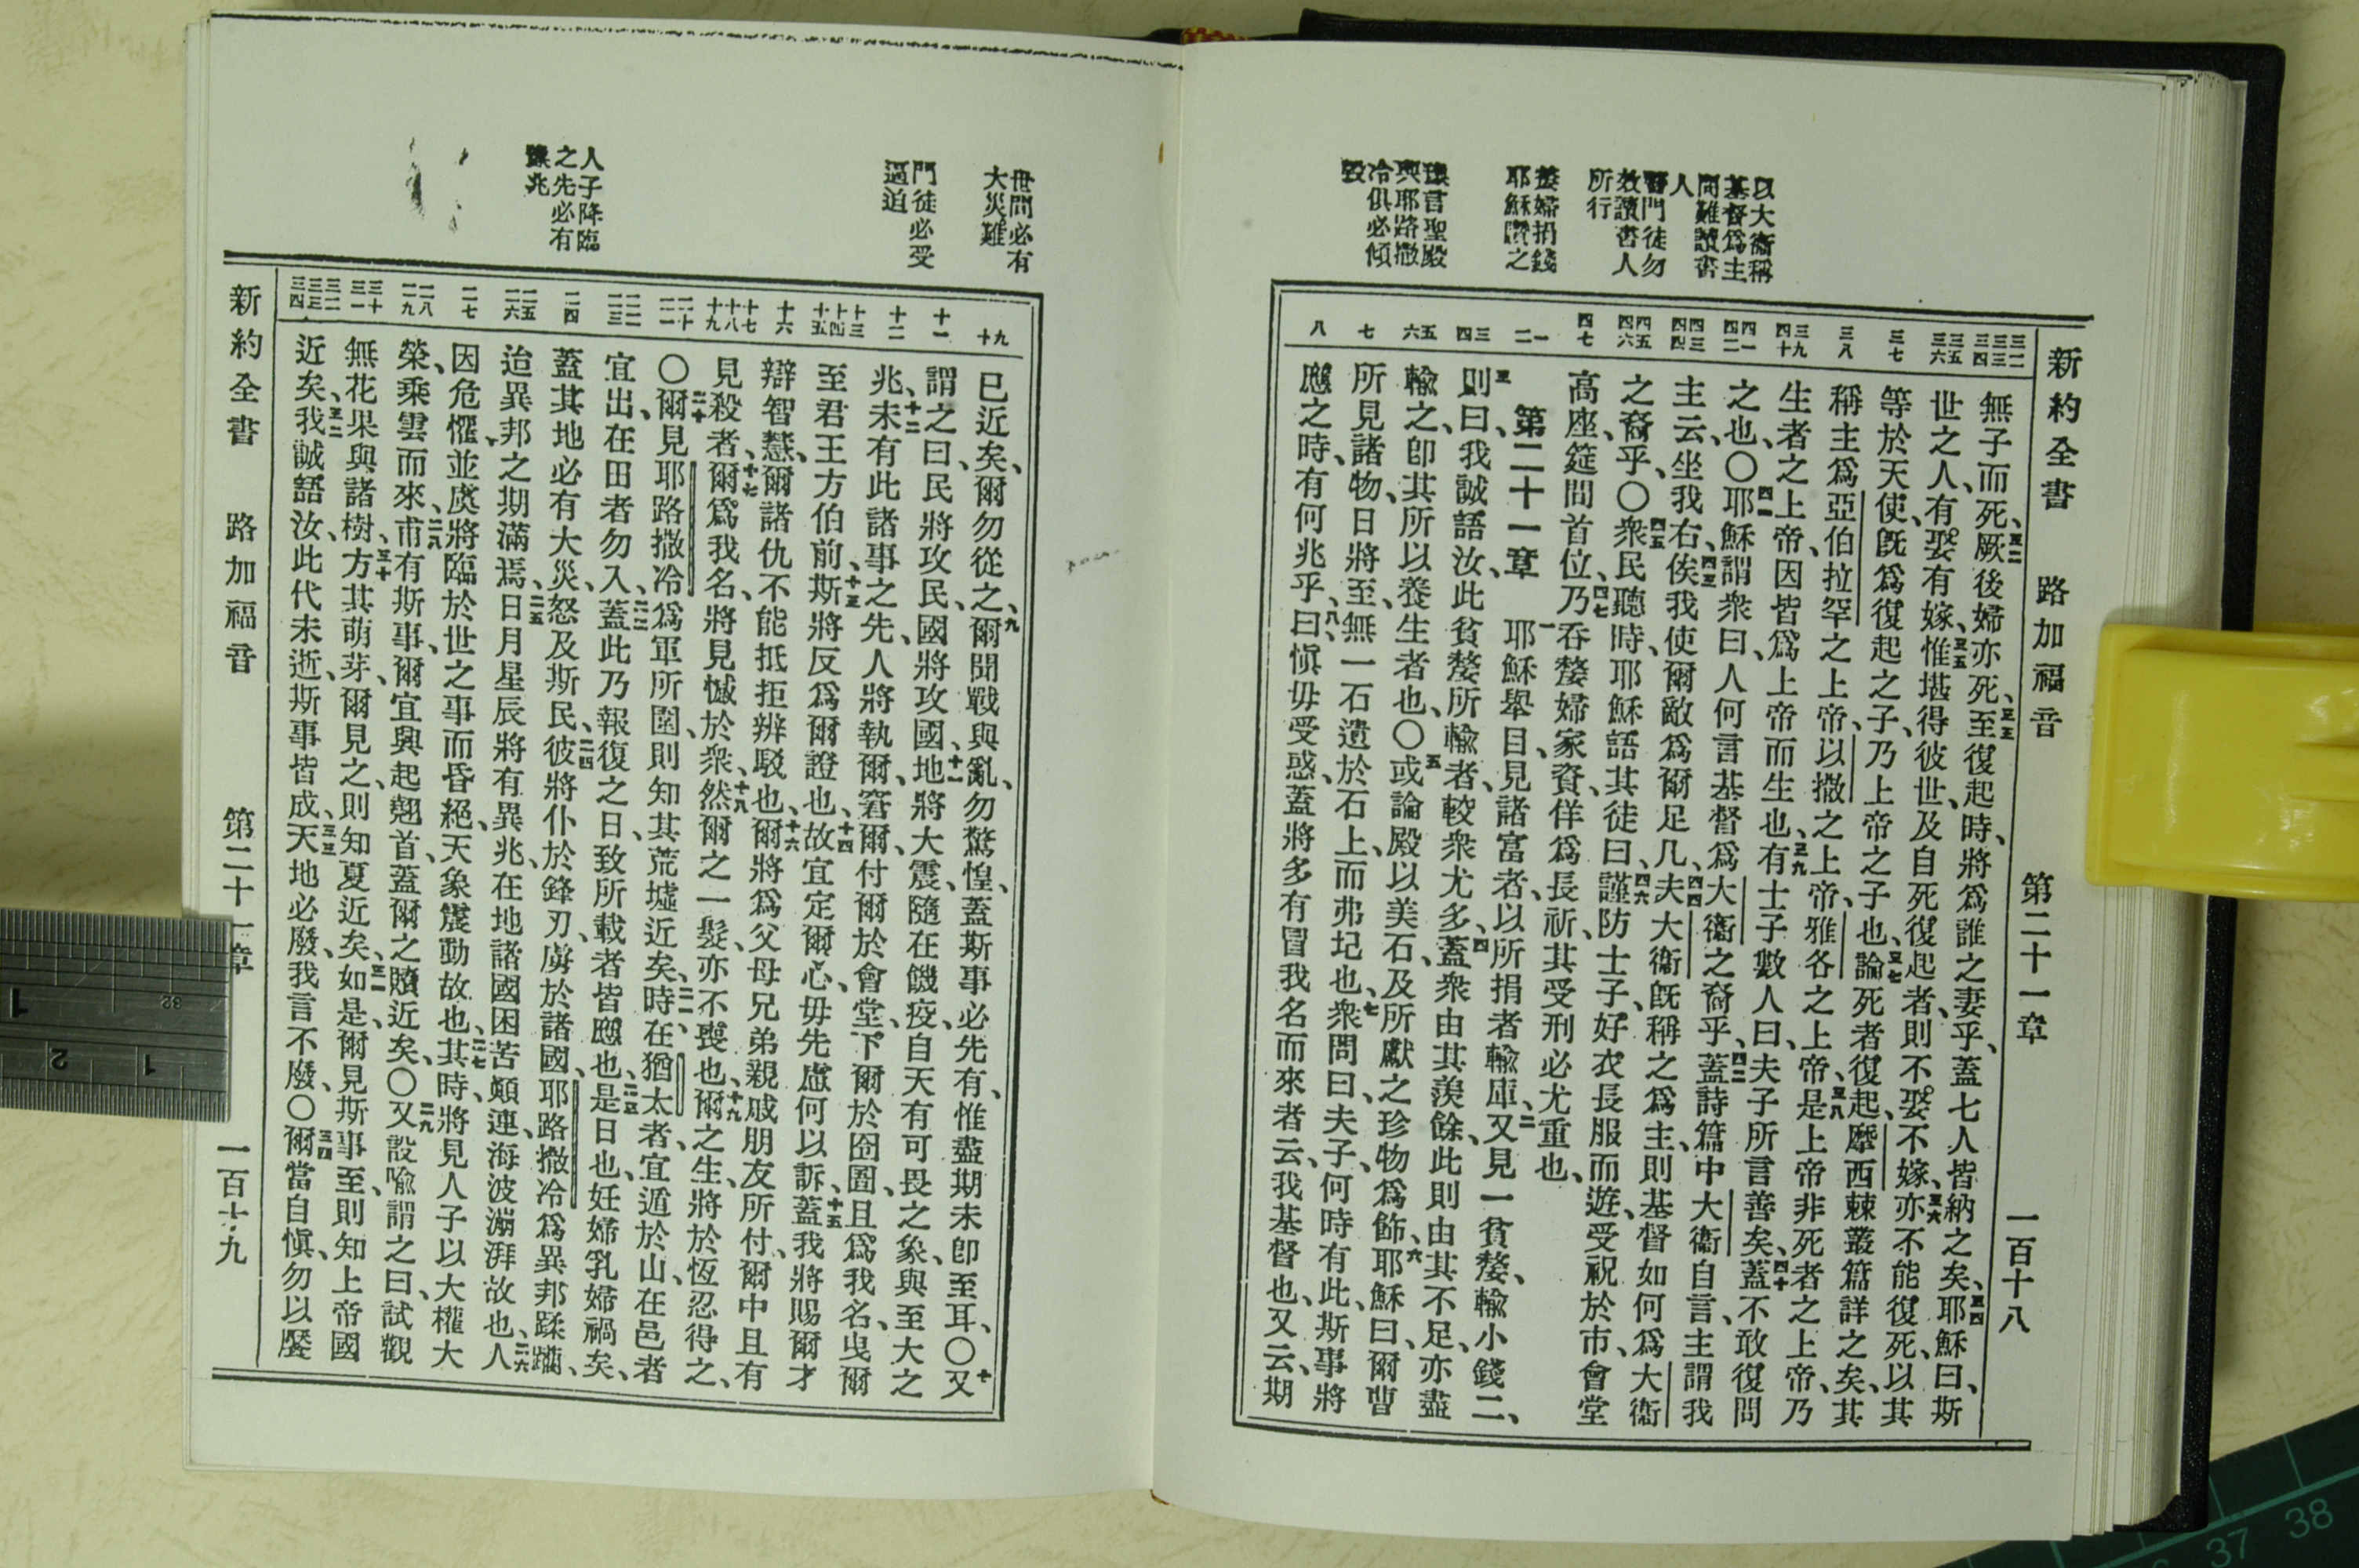 新約全書 路加福音 第二十一章 一百十八
以大衞稱
基督爲主
問難讀書
人
警門徒勿
效讀書人
所行
嫠婦捐錢
耶穌贊之
豫言聖殿
與耶路撒
冷俱必傾
毀
三二 三三 三四
三五 三六
三七
三八
三九 四十
四一 四二
四三 四四
四五 四六
四七
一 二
三 四
五 六
七
八
無子而死、三二厥後婦亦死、三三至復起時、將爲誰之妻乎、蓋七人皆納之矣、三四耶穌曰、斯
世之人、有娶有嫁、三五惟堪得彼世、及自死復起者、則不娶不嫁、三六亦不能復死、以其
等於天使、旣爲復起之子、乃上帝之子也、三七論死者復起、摩西棘叢篇詳之矣、其
稱主爲亞伯拉罕之上帝、以撒之上帝、雅各之上帝、三八是上帝非死者之上帝、乃
生者之上帝、因皆爲上帝而生也、三九有士子數人曰、夫子所言善矣、四十蓋不敢復問
之也、〇四一耶穌謂衆曰、人何言基督爲大衞之裔乎、四二蓋詩篇中大衞自言、主謂我
主云、坐我右、四三俟我使爾敵爲爾足几、四四夫大衞旣稱之爲主、則基督如何爲大衞
之裔乎、〇四五衆民聽時、耶穌語其徒曰、四六謹防士子、好衣長服而遊、受祝於市、會堂
高座、筵間首位、四七乃吞嫠婦家資、佯爲長祈、其受刑必尤重也、
第二十一章 一耶穌舉目、見諸富者、以所捐者輸庫、二又見一貧嫠、輸小錢二、
三則曰、我誠語汝、此貧嫠所輸者、較衆尤多、四蓋衆由其羨餘、此則由其不足、亦盡
輸之、卽其所以養生者也、〇五或論殿以美石、及所獻之珍物爲飾、六耶穌曰、爾曹
所見諸物、日將至、無一石遺於石上、而弗圮也、七衆問曰、夫子、何時有此、斯事將
應之時、有何兆乎、八曰、愼毋受惑、蓋將多有冒我名而來者云、我基督也、又云、期
世間必有
大災難
門徒必受
逼迫
人子降臨
之先必有
豫兆
九 十
十一
十二
十三 十四 十五
十六
十七 十八 十九
二十 二一
二二 二三
二四
二五 二六
二七
二八 二九
三十 三一
三二 三三 三四
已近矣、爾勿從之、九爾聞戰與亂、勿驚惶、蓋斯事必先有、惟盡期未卽至耳、〇十又
謂之曰、民將攻民、國將攻國、十一地將大震、隨在饑疫、自天有可畏之象、與至大之
兆、十二未有此諸事之先、人將執爾、窘爾、付爾於會堂、下爾於囹圄、且爲我名、曳爾
至君王方伯前、十三斯將反爲爾證也、十四故宜定爾心、毋先慮何以訴、十五蓋我將賜爾才
辯智慧、爾諸仇不能抵拒辨駁也、十六爾將爲父母兄弟親戚朋友所付、爾中且有
見殺者、十七爾爲我名、將見憾於衆、十八然爾之一髮、亦不喪也、十九爾之生、將於恆忍得之、
〇二十爾見耶路撒冷爲軍所圍、則知其荒墟近矣、二一時在猶太者、宜遁於山、在邑者
宜出、在田者勿入、二二蓋此乃報復之日、致所載者皆應也、二三是日也、妊婦乳婦禍矣、
蓋其地必有大災、怒及斯民、二四彼將仆於鋒刃、虜於諸國、耶路撒冷爲異邦蹂躪、
迨異邦之期滿焉、二五日月星辰將有異兆、在地諸國困苦顚連、海波漰湃故也、二六人
因危懼、並虞將臨於世之事而昏絕、天象震動故也、二七其時、將見人子以大權大
榮、乘雲而來、二八甫有斯事、爾宜興起翹首、蓋爾之贖近矣、〇二九又設喩謂之曰、試觀
無花果與諸樹、三十方其萌芽、爾見之、則知夏近矣、三一如是、爾見斯事至、則知上帝國
近矣、三二我誠語汝、此代未逝、斯事皆成、三三天地必廢、我言不廢、〇三四爾當自愼、勿以饜
新約全書 路加福音 第二十一章 一百十九
1
2
1
32
37 38